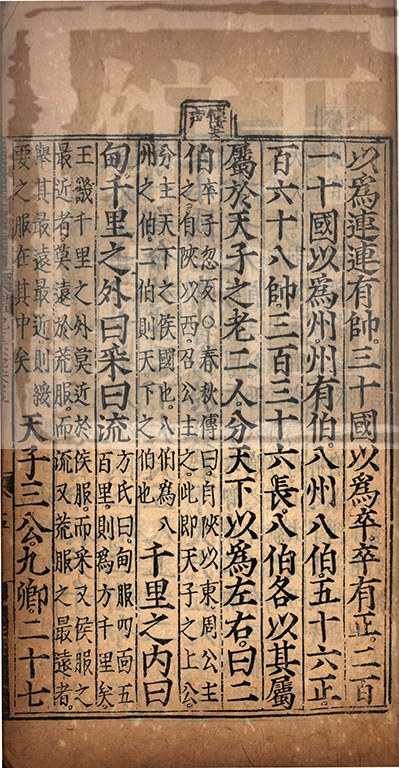 以爲連連有帥。三十國以爲卒。卒有正。二百
一十國以爲州。州有伯。八州八伯。五十六正。
百六十八帥。三百三十六長。八伯各以其屬
屬於天子之老二人。分天下以爲左右。曰二
伯
卒子忽反○春秋傳曰。自陝以東。周公主
之。自陝以西。召公主之。此即天子之上公。
分主天下之侯國也。八伯爲八
州之伯。二伯則天下之伯也
千里之内曰
甸。千里之外曰采曰流
方氏曰。甸服四面五
百里。則爲方千里矣。
王畿千里之外。莫近於侯服。而采又侯服之
最近者。莫遠於荒服。而流又荒服之最遠者。
舉其最遠最近。則綏
要之服在其中矣
天子三公九卿二十七